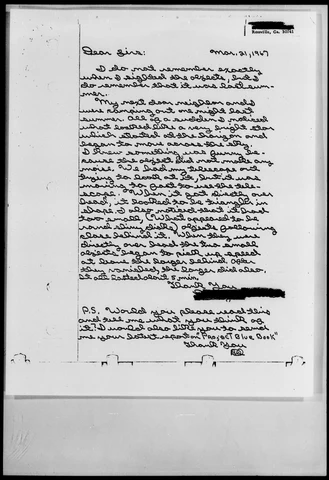 Roseville, Ca. 95741
Dear Sirs: Mar. 21, 1967
I do not remember exactly
when I sighted the objects, but I
do remember that it was last sum-
mer.
My next door neighbor and I
were camping out one night last
summer. All of a sudden I noticed
what looked like a very bright star
which started at the horizon and
began to move across the sky.
I knew something was funny be-
cause the object did not make any
noise. We had my telescope out
trying to look at it, but it was
moving to fast to use the tele-
scope. When it got directly over
head, it looked to be triangle in
shape. I also noticed that it had
two small, (What appeared to be
round shiny disks) objects following
close behind it. When they
directly over head the two small
objects began to pick up speed
and leave the larger behind. After
they vanished the larger did also.
It all lasted about 5 min.
Thank You
P.S. Would you please read this
and tell me what you think of
it? I would also like you to send
me your latest report on "Project Blue Book"
Thank You